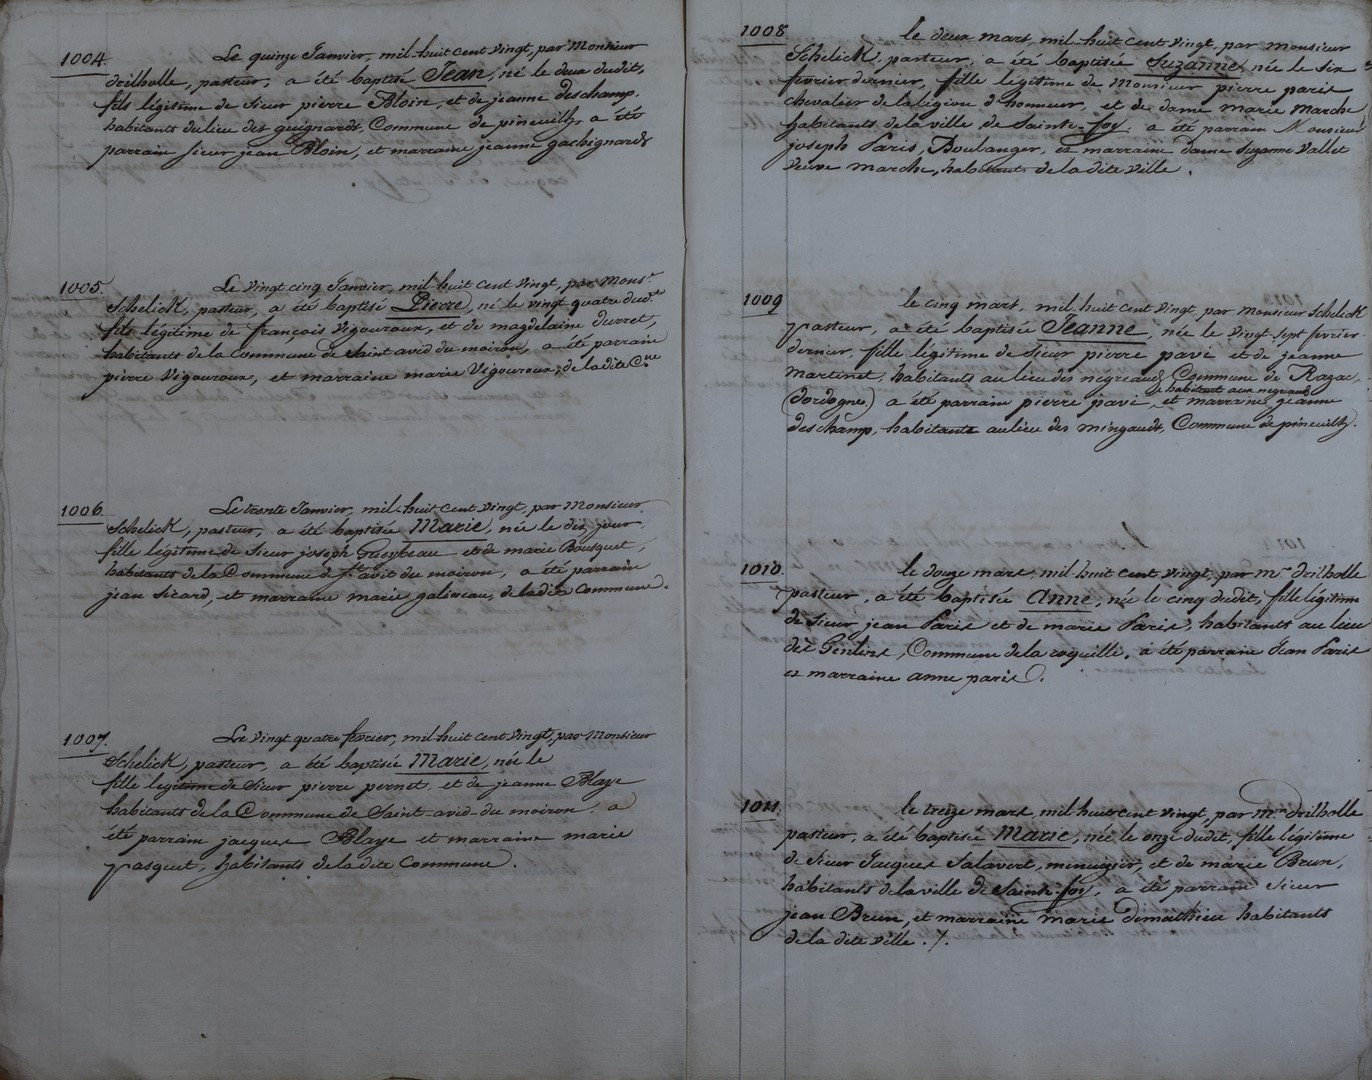 1004.
Le quinze Janvier, mil-huit cent vingt, par Monsieur
drilholle, pasteur, a été baptisé Jean, né le deux dudit,
fils légitime de Sieur pierre Bloin, et de jeanne deschamp,
habitants du lieu des guignards, Commune de pineuilh, a été
parrain Sieur jean Bloin, et marraine jeanne gachignards
1005.
Le vingt cinq Janvier, mil-huit cent vingt, par Mons.r
Schelick, pasteur, a été baptisé Pierre, né le vingt quatre dud.t
fils légitime de françois Vigouroux, et de magdelaine durret,
habitants de la Commune de Saint avid du moiron, a été parrain
pierre Vigouroux, et marraine marie Vigouroux, de la dite C.ne
1006.
Le trente Janvier, mil-huit cent vingt, par Monsieur
Schelick, pasteur, a été baptisée Marie, née le dix, jour
fille légitime de Sieur joseph et de marie Bousquet,
habitants de la Commune de S.t avit du moiron, a été parrain
jean Sicard, et marraine marie galineau, de la dite Commune.
1007.
Le vingt quatre février, mil-huit cent vingt, par Monsieur
Schelick, pasteur, a été baptisée Marie, née le
fille légitime de Sieur pierre pernet, et de jeanne Blaye
habitants de la Commune de Saint-avid-du moiron. a
été parrain jacques Blaye et marraine marie
pasquet, habitants de la dite Commune.
1008
le deux mars, mil-huit cent vingt, par monsieur
Schelick, pasteur, a été baptisée Suzanne, née le six
février dernier, fille légitime de Monsieur pierre paris
chevalier de la légion d'honneur, et de dame marie Marche
habitants de la ville de Sainte-foy. a été parrain Monsieur
joseph Paris, Boulanger, et marraine dame Suzanne Vallet
Veuve marche, habitants de la dite ville.
1009
le cinq mars, mil-huit cent vingt, par monsieur Schelick
pasteur, a été baptisée Jeanne, née le vingt-sept février
dernier, fille légitime de Sieur pierre pavé et de jeanne
martinet, habitants au lieu des négreauds Commune de Razac,
habitant aux négrauds
(dordogne) a été parrain pierre pavé, et marraine jeanne
deschamp, habitants au lieu des mingauds, Commune de pineuilh.
1010.
le douze mars, mil-huit cent vingt, par m.r drilholle
pasteur, a été baptisée Anne, née le cinq dudit, fille légitime
de Sieur jean Paris et de marie Paris, habitants au lieu
des Gentins, Commune de la roquille, a été parrain Jean Paris
et marraine anne paris.
1011.
le treize mars, mil-huit cent vingt, par m.r drilholle
pasteur, a été baptisée Marie, née le onze dudit, fille légitime
de Sieur Jacques Salavert, menuizier, et de marie Brun,
habitants de la ville de Sainte-foy, a été parrain Sieur
jean Brun, et marraine marie dimathieu habitants
de la dite ville. /.